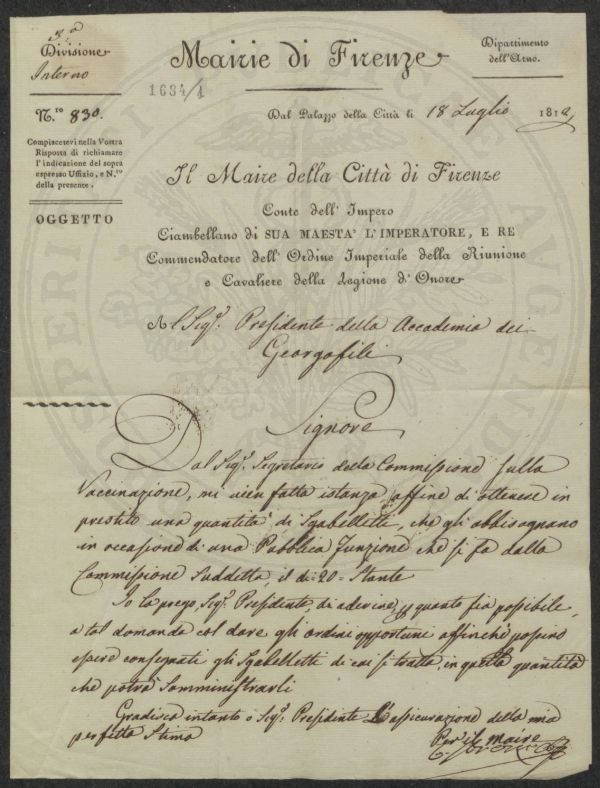 3.ª
Divisione
Interno
N.ro 830.
Compiacetevi nella Vostra
Risposta di richiamare
l'indicazione del sopra
espresso Uffizio, e N.ro
della presente.
OGGETTO
Mairie di Firenze
1684/1
Dipartimento
dell'Arno.
Dal Palazzo della Città li 18 Luglio 1812
Il Maire della Città di Firenze
Conte dell' Impero
Ciambellano di SUA MAESTA' L'IMPERATORE, E RE
Commendatore dell' Ordine Imperiale della Riunione
e Cavaliere della Legione d' Onore
Al Sigr. Presidente della Accademia dei
Georgofili
Signore
Dal Sigr. Segretario della Commissione sulla
Vaccinazione, mi vien fatta istanza, affine di ottenere in
prestito una quantità di Sgabelletti, che gli abbisognano
in occasione di una Pubblica Funzione che si fa dalla
Commissione Suddetta, il dì 20 = Stante
Io la prego, Sigr. Presidente di aderire, p quanto sia possibile,
a tal domanda col dare gli ordini opportuni affinchè possino
essere consegnati gli Sgabelletti di cui si tratta, in quella quantità
che potrà somministrarli
Gradisca intanto o Sigr. Presidente L'assicurazione della mia
perfetta Stima
Per il Maire
PROSPERITATI PUBLICAE AUGENDAE